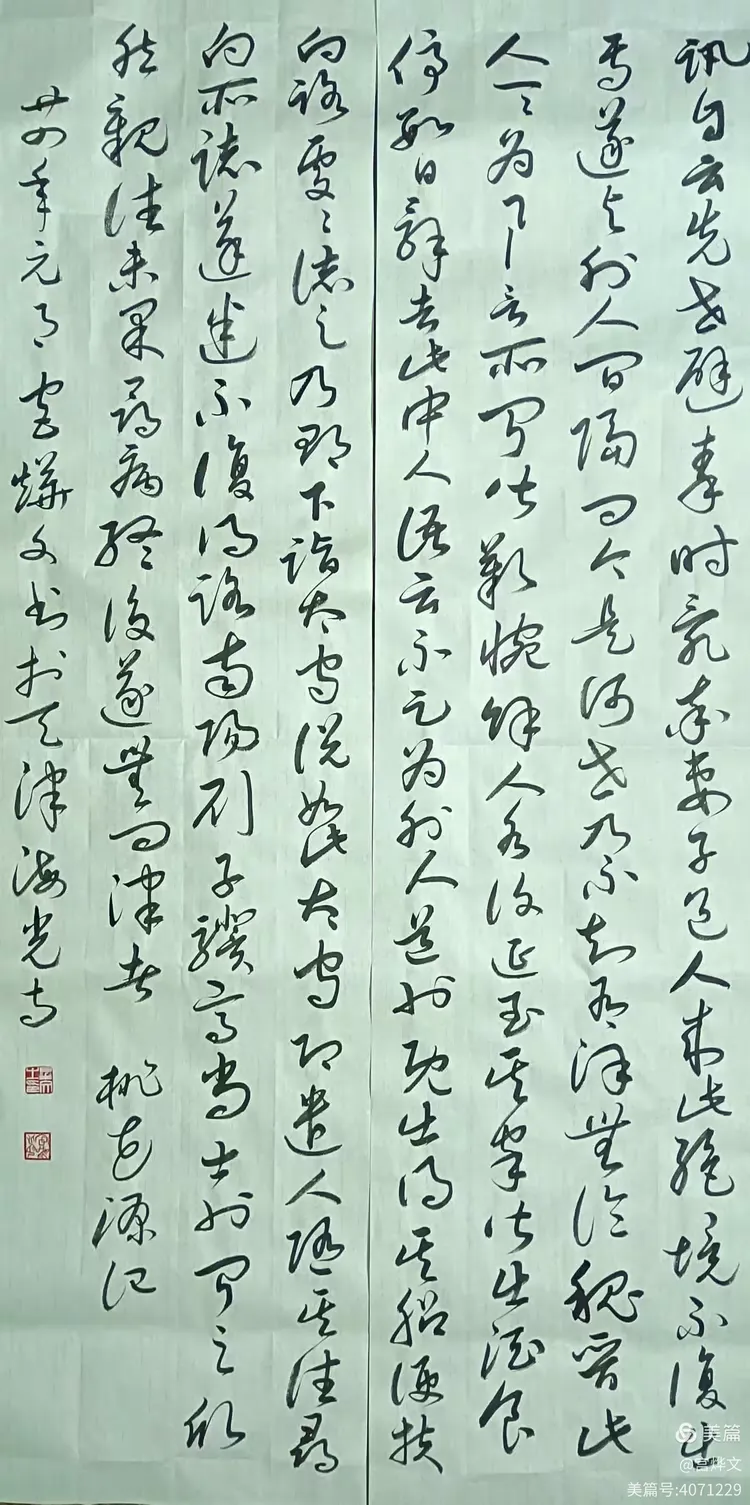 訊自云先世避秦时乱率妻子邑人来此绝境不復出
焉遂与外人间隔问今是何世乃不知有汉無论魏晋此
人一一为具言所闻皆歎惋馀人各復延至其家皆出酒食
停数日辞去此中人语云不足为外人道也既出得其船便扶
向路处々誌之及郡下詣太守说如此太守即遣人随其往尋
向所誌遂迷不復得路南阳刘子骥高尚士也闻之欣
然親往未果尋病终後遂無问津者 桃花源记
廿四年元月高烨文书於天津海光寺
美篇
@高烨文
美篇号:4071229